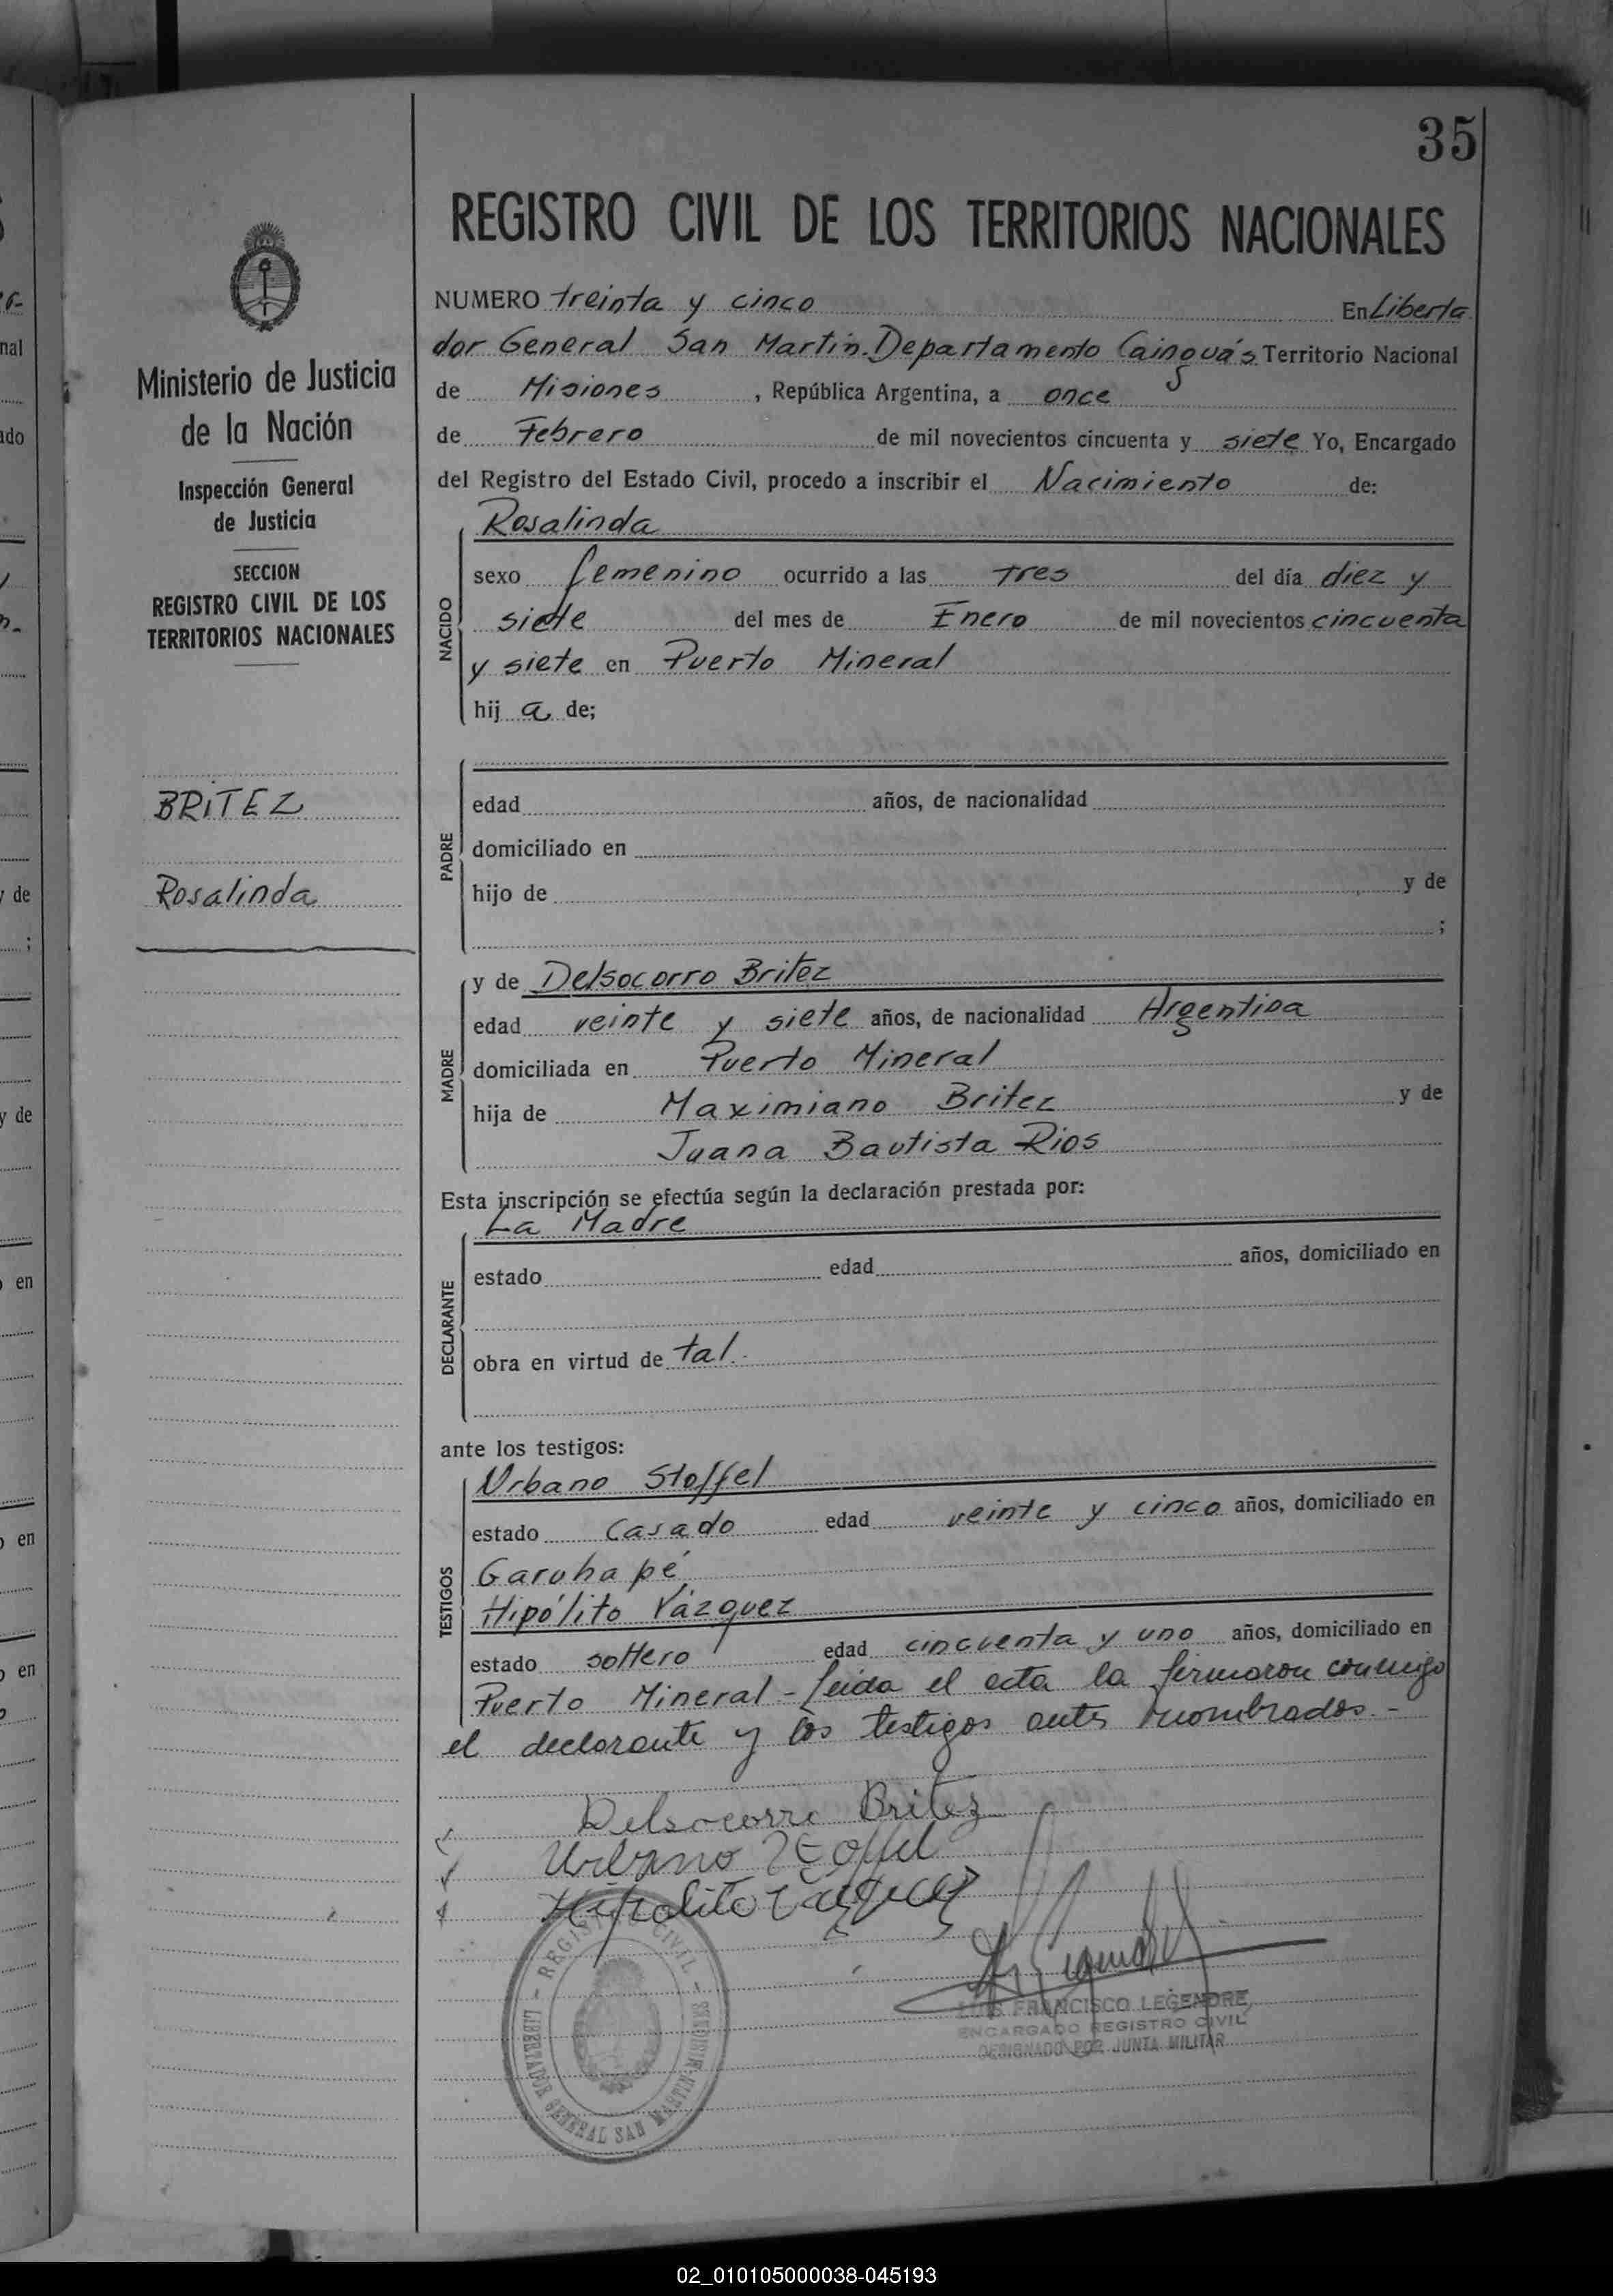 35
REGISTRO CIVIL DE LOS TERRITORIOS NACIONALES
Ministerio de Justicia
de la Nación
Inspección General
de Justicia
SECCION
REGISTRO CIVIL DE LOS
TERRITORIOS NACIONALES
BRITEZ
Rosalinda
NUMERO treinta y cinco En Liberta
dor General San Martín. Departamento Cainguás Territorio Nacional
de Misiones, República Argentina, a once
de Febrero de mil novecientos cincuenta y siete Yo, Encargado
del Registro del Estado Civil, procedo a inscribir el Nacimiento de:
NACIDO
Rosalinda
sexo femenino ocurrido a las tres del día diez y
siete del mes de Enero de mil novecientos cincuenta
y siete en Puerto Mineral
hij a de;
PADRE
edad años, de nacionalidad
domiciliado en
hijo de y de
;
MADRE
y de Delsocorro Britez
edad veinte y siete años, de nacionalidad Argentina
domiciliada en Puerto Mineral
hija de Maximiano Britez y de
Juana Bautista Rios
Esta inscripción se efectúa según la declaración prestada por:
DECLARANTE
La Madre
estado edad años, domiciliado en
obra en virtud de tal.
ante los testigos:
TESTIGOS
Urbano Stoffel
estado Casado edad veinte y cinco años, domiciliado en
Garuhapé
Hipólito Vázquez
estado soltero edad cincuenta y uno años, domiciliado en
Puerto Mineral - leida el acta la firmaron conmigo
el declarante y los testigos antes nombrados. -
Delsocorro Britez
Urbano Stoffel
Hipolito Vazquez
REGISTRO CIVIL
LIBERTADOR GENERAL SAN MARTIN-MISIONES
LUIS FRANCISCO LEGENDRE
ENCARGADO REGISTRO CIVIL
DESIGNADO POR JUNTA MILITAR
02_010105000038-045193